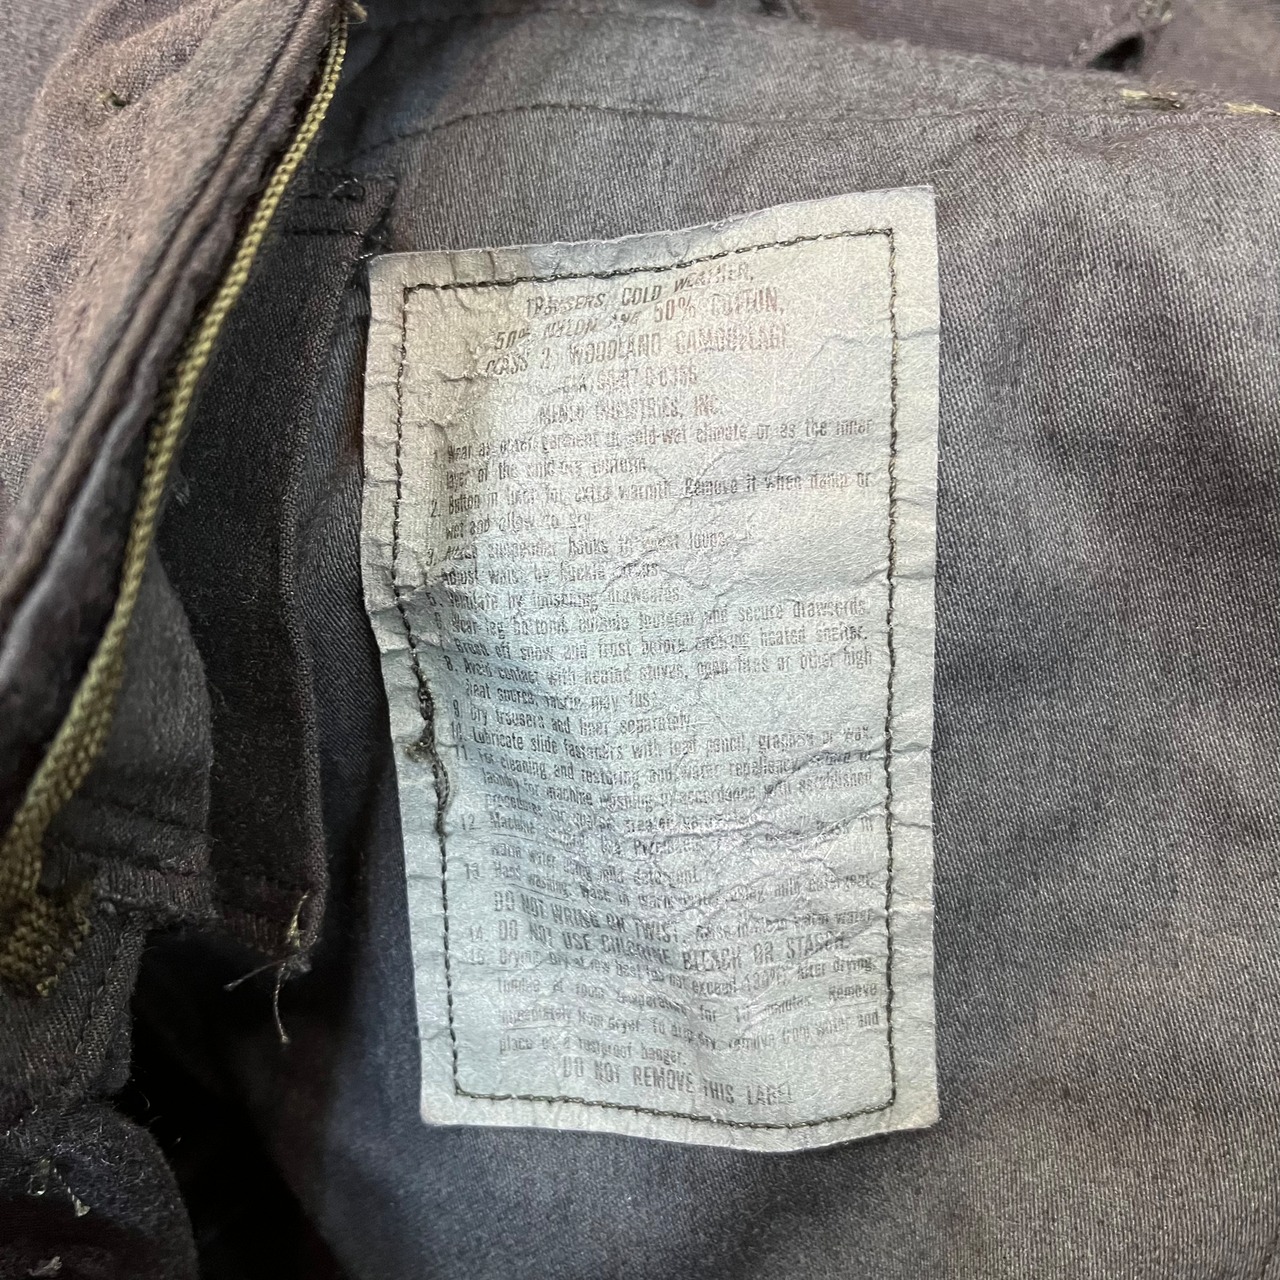 TROUSERS, COLD WEATHER,
50% NYLON AND 50% COTTON,
CLASS 2, WOODLAND CAMOUFLAGE
INDUSTRIES, INC.
1. Wear as outer garment in cold-wet climate or as the inner
layer of the cold-dry uniform.
2. Button in liner for extra warmth. Remove it when damp or
wet and allow to dry.
3. Attach suspender hooks to waist loops.
Adjust waist by buckle straps.
5. Ventilate by loosening drawcords.
6. Wear leg bottoms outside footgear and secure drawcords.
Brush off snow and frost before entering heated shelter.
8. Avoid contact with heated stoves, open fires or other high
heat source, fabric may fuse.
9. Dry trousers and liner separately.
10. Lubricate slide fasteners with lead pencil, graphite or wax.
11. For cleaning and restoring and water repellency, return to
laundry for machine washing in accordance with established
procedures for treated garments.
12. Machine wash in
warm water using mild detergent.
13. Hand washing: Wash in warm water using mild detergent.
DO NOT WRING OR TWIST. Rinse in clean warm water
14. DO NOT USE CHLORINE BLEACH OR STARCH.
15. Drying: Dry at low heat (do not exceed 130°F). After drying,
tumble at room temperature for 10 minutes. Remove
immediately from dryer. To drip dry, remove from water and
place on a rustproof hanger.
DO NOT REMOVE THIS LABEL